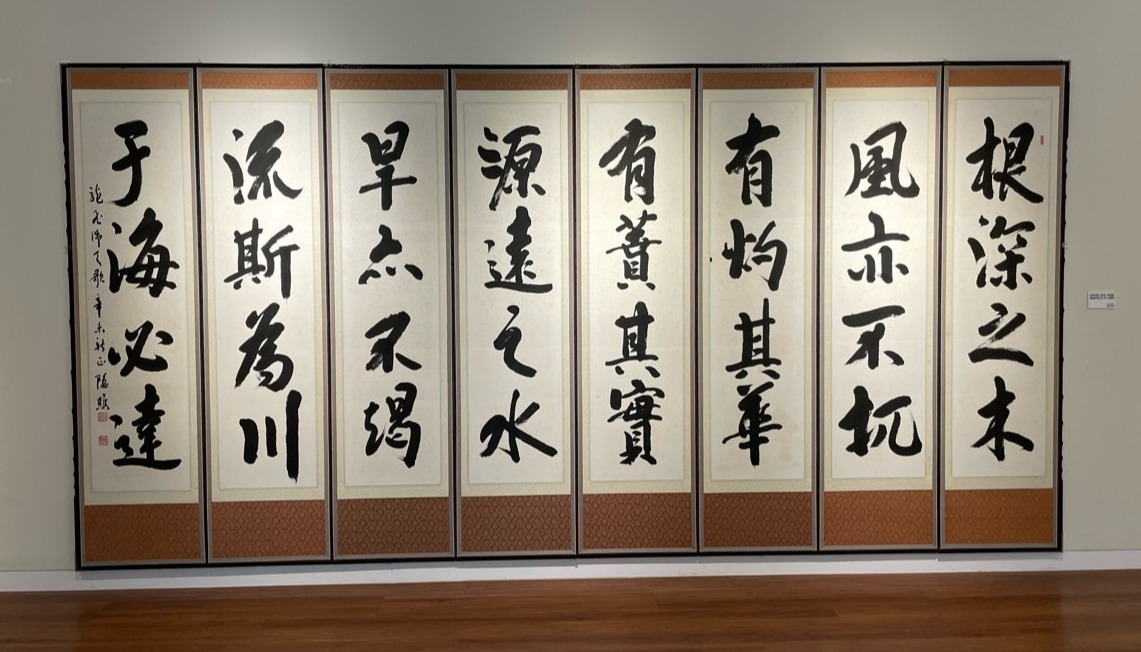 根深之木
風亦不扤
有灼其華
有蕡其實
源遠之水
旱亦不竭
流斯為川
于海必達
龍飛御天歌辛未新正